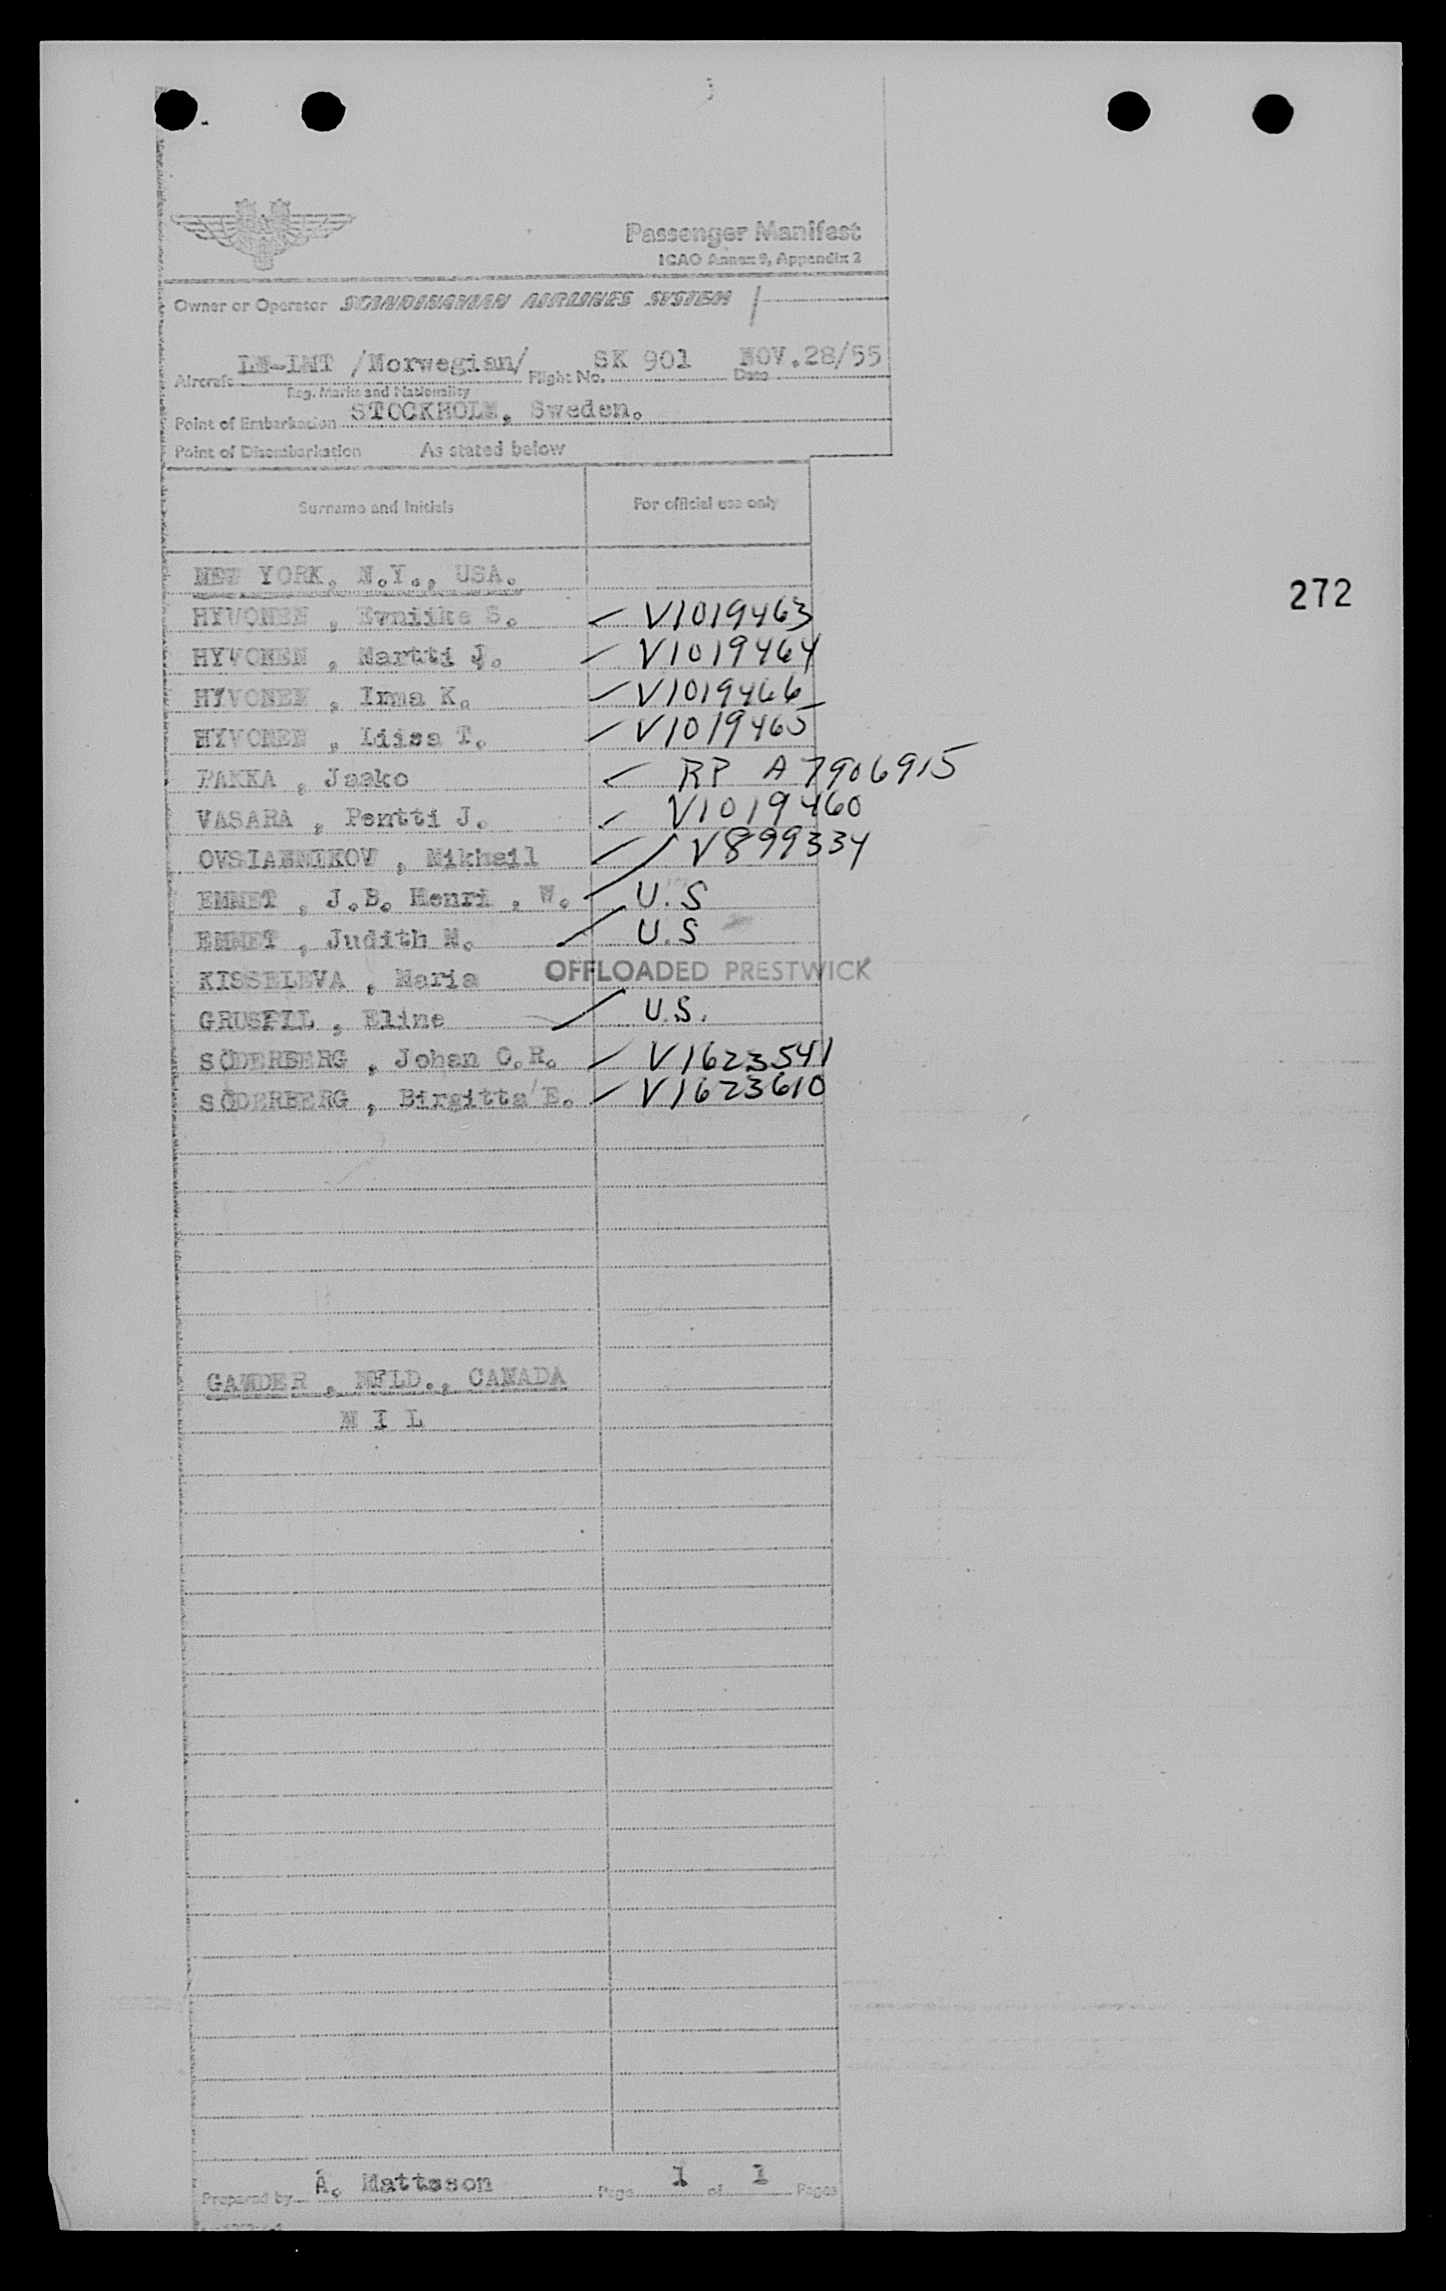 Passenger Manifest
ICAO Annex 9, Appendix 2
Owner or Operator SCANDINAVIAN AIRLINES SYSTEM
Aircraft LN-LMT /Norwegian/ Flight No. SK 901 Date NOV.28/55
Reg. Marks and Nationality
Point of Embarkation STOCKHOLM, Sweden.
Point of Disembarkation As stated below
Surname and Initials For official use only
NEW YORK. N.Y., USA.
HYVONEN , S. V1019463
HYVONEN , Martti J. V1019464
HYVONEN , Irma K. V1019466
HYVONEN , Liisa T. V1019465
PAKKA , Jaako RP A7906915
VASARA , Pentti J. V1019460
OVSIANNIKOV , Mikhail V899334
EMMET , J.B. Henri , W. U.S
EMMET , Judith M. U.S
KISSELEVA , Maria OFFLOADED PRESTWICK
GRUSPIL , Eline U.S.
SÖDERBERG , Johan C.R. V1623541
SÖDERBERG , Birgitta E. V1623610
272
GANDER , NFLD., CANADA
N I L
Prepared by A. Mattsson Page 1 of 1 Pages